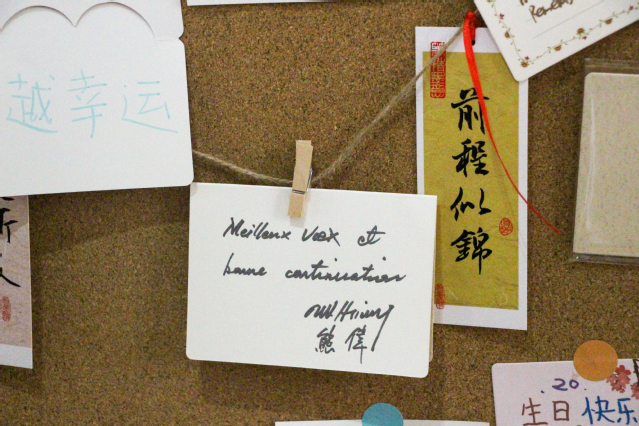 越幸运
Meilleux Voex et
bonne continuation
熊偉
前程似錦
.20.
生日快乐